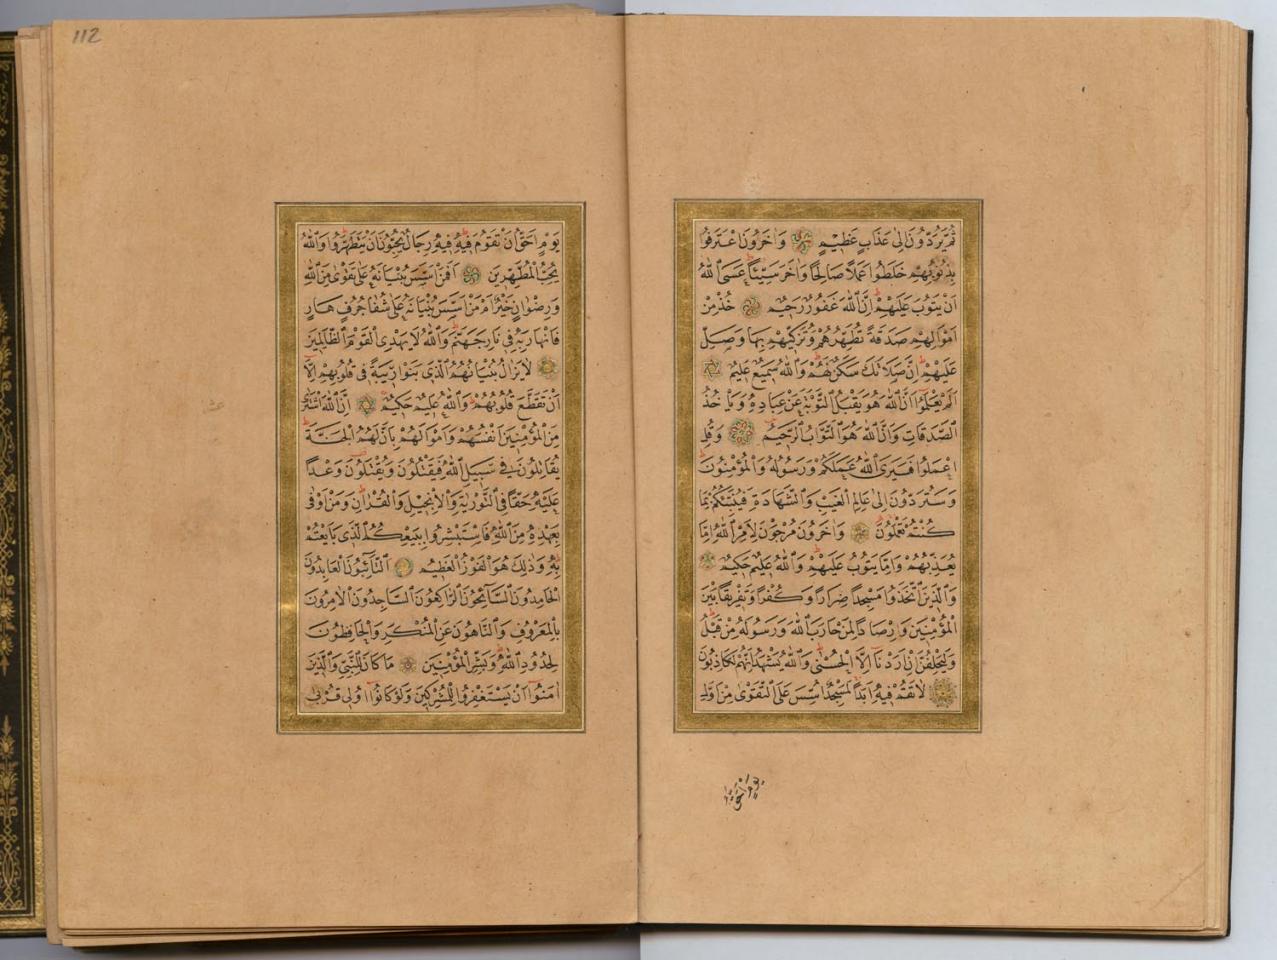 ثُمَّ يُرَدُّونَ اِلٰى عَذَابٍ عَظِيمٍ وَاٰخَرُونَ اعْتَرَفُوا
بِذُنُوبِهِمْ خَلَطُوا عَمَلًا صَالِحًا وَاٰخَرَ سَيِّئًا عَسَى اللّٰهُ
اَنْ يَتُوبَ عَلَيْهِمْ اِنَّ اللّٰهَ غَفُورٌ رَحِيمٌ خُذْ مِنْ
اَمْوَالِهِمْ صَدَقَةً تُطَهِّرُهُمْ وَتُزَكِّيهِمْ بِهَا وَصَلِّ
عَلَيْهِمْ اِنَّ صَلٰاتَكَ سَكَنٌ لَهُمْ وَاللّٰهُ سَمِيعٌ عَلِيمٌ
اَلَمْ يَعْلَمُوا اَنَّ اللّٰهَ هُوَ يَقْبَلُ التَّوْبَةَ عَنْ عِبَادِهِ وَيَاْخُذُ
الصَّدَقَاتِ وَاَنَّ اللّٰهَ هُوَ التَّوَّابُ الرَّحِيمُ وَقُلِ
اعْمَلُوا فَسَيَرَى اللّٰهُ عَمَلَكُمْ وَرَسُولُهُ وَالْمُؤْمِنُونَ
وَسَتُرَدُّونَ اِلٰى عَالِمِ الْغَيْبِ وَالشَّهَادَةِ فَيُنَبِّئُكُمْ بِمَا
كُنْتُمْ تَعْمَلُونَ وَاٰخَرُونَ مُرْجَوْنَ لِاَمْرِ اللّٰهِ اِمَّا
يُعَذِّبُهُمْ وَاِمَّا يَتُوبُ عَلَيْهِمْ وَاللّٰهُ عَلِيمٌ حَكِيمٌ
وَالَّذِينَ اتَّخَذُوا مَسْجِدًا ضِرَارًا وَكُفْرًا وَتَفْرِيقًا بَيْنَ
الْمُؤْمِنِينَ وَاِرْصَادًا لِمَنْ حَارَبَ اللّٰهَ وَرَسُولَهُ مِنْ قَبْلُ
وَلَيَحْلِفُنَّ اِنْ اَرَدْنَا اِلَّا الْحُسْنٰى وَاللّٰهُ يَشْهَدُ اِنَّهُمْ لَكَاذِبُونَ
لَا تَقُمْ فِيهِ اَبَدًا لَمَسْجِدٌ اُسِّسَ عَلَى التَّقْوٰى مِنْ اَوَّلِ
يَوْمٍ اَحَقُّ
112
يَوْمٍ اَحَقُّ اَنْ تَقُومَ فِيهِ فِيهِ رِجَالٌ يُحِبُّونَ اَنْ يَتَطَهَّرُوا وَاللّٰهُ
يُحِبُّ الْمُطَّهِّرِينَ اَفَمَنْ اَسَّسَ بُنْيَانَهُ عَلٰى تَقْوٰى مِنَ اللّٰهِ
وَرِضْوَانٍ خَيْرٌ اَمْ مَنْ اَسَّسَ بُنْيَانَهُ عَلٰى شَفَا جُرُفٍ هَارٍ
فَانْهَارَ بِهِ فِي نَارِ جَهَنَّمَ وَاللّٰهُ لَا يَهْدِي الْقَوْمَ الظَّالِمِينَ
لَا يَزَالُ بُنْيَانُهُمُ الَّذِي بَنَوْا رِيبَةً فِي قُلُوبِهِمْ اِلَّا
اَنْ تَقَطَّعَ قُلُوبُهُمْ وَاللّٰهُ عَلِيمٌ حَكِيمٌ اِنَّ اللّٰهَ اشْتَرٰى
مِنَ الْمُؤْمِنِينَ اَنْفُسَهُمْ وَاَمْوَالَهُمْ بِاَنَّ لَهُمُ الْجَنَّةَ
يُقَاتِلُونَ فِي سَبِيلِ اللّٰهِ فَيَقْتُلُونَ وَيُقْتَلُونَ وَعْدًا
عَلَيْهِ حَقًّا فِي التَّوْرٰيةِ وَالْاِنْجِيلِ وَالْقُرْاٰنِ وَمَنْ اَوْفٰى
بِعَهْدِهِ مِنَ اللّٰهِ فَاسْتَبْشِرُوا بِبَيْعِكُمُ الَّذِي بَايَعْتُمْ
بِهِ وَذٰلِكَ هُوَ الْفَوْزُ الْعَظِيمُ اَلتَّائِبُونَ الْعَابِدُونَ
الْحَامِدُونَ السَّائِحُونَ الرَّاكِعُونَ السَّاجِدُونَ الْاٰمِرُونَ
بِالْمَعْرُوفِ وَالنَّاهُونَ عَنِ الْمُنْكَرِ وَالْحَافِظُونَ
لِحُدُودِ اللّٰهِ وَبَشِّرِ الْمُؤْمِنِينَ مَا كَانَ لِلنَّبِيِّ وَالَّذِينَ
اٰمَنُوا اَنْ يَسْتَغْفِرُوا لِلْمُشْرِكِينَ وَلَوْ كَانُوا اُولِي قُرْبٰى